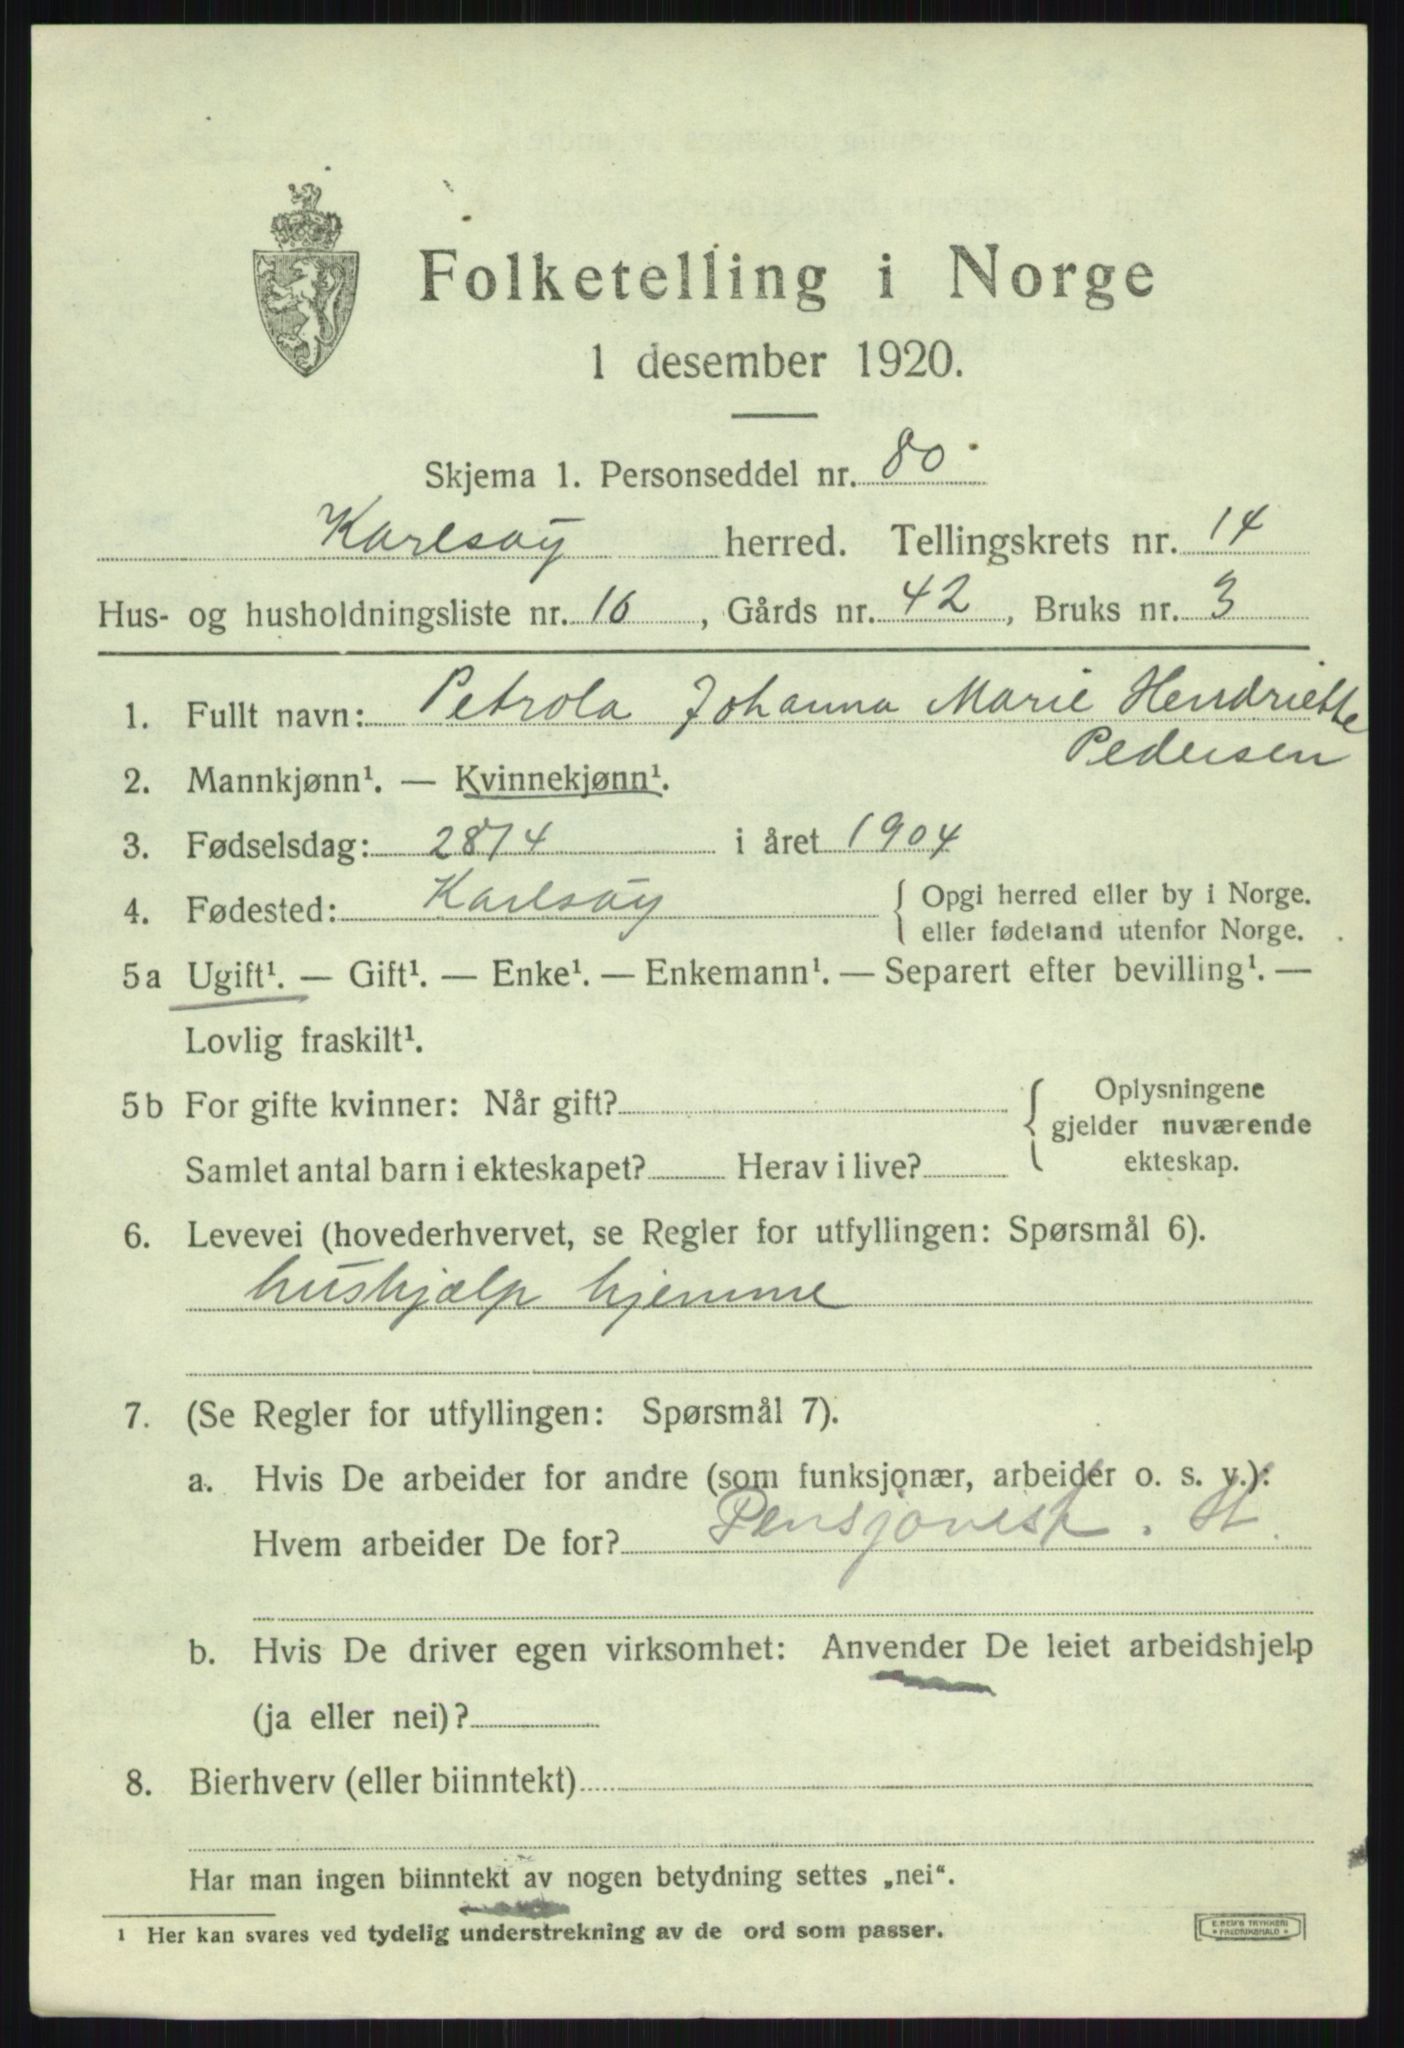 Folketelling i Norge
1 desember 1920.
Skjema 1. Personseddel nr. 80
Karlsøy herred. Tellingskrets nr. 14
Hus- og husholdningsliste nr. 16, Gårds nr. 42, Bruks nr. 3
1. Fullt navn: Petrola Johanna Marie Hendriette
Pedersen
2. Mannkjønn¹. — Kvinnekjønn¹.
3. Fødselsdag: 28/4 i året 1904
4. Fødested: Karlsøy { Opgi herred eller by i Norge.
eller fødeland utenfor Norge.
5a Ugift¹. — Gift¹. — Enke¹. — Enkemann¹. — Separert efter bevilling¹. —
Lovlig fraskilt¹.
5b For gifte kvinner: Når gift? { Oplysningene
gjelder nuværende
Samlet antal barn i ekteskapet? Herav i live? ekteskap.
6. Levevei (hovederhvervet, se Regler for utfyllingen: Spørsmål 6).
hushjælp hjemme
7. (Se Regler for utfyllingen: Spørsmål 7).
a. Hvis De arbeider for andre (som funksjonær, arbeider o. s. v.):
Hvem arbeider De for?
b. Hvis De driver egen virksomhet: Anvender De leiet arbeidshjelp
(ja eller nei)?
8. Bierhverv (eller biinntekt)
Har man ingen biinntekt av nogen betydning settes „nei“.
¹ Her kan svares ved tydelig understrekning av de ord som passer.
E. SEM'S TRYKKERI
FREDRIKSHALD